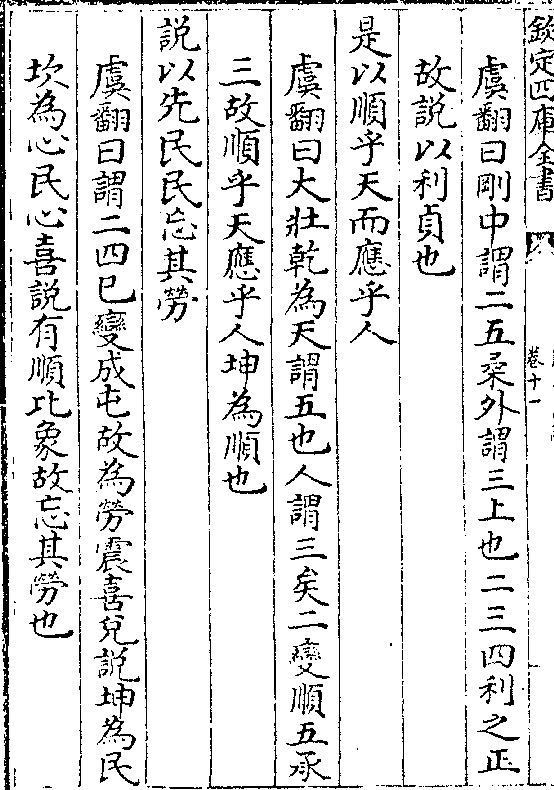 欽定四庫全書
卷十一
虞翻曰剛中謂二五柔外謂三上也二三四利之正
故説以利貞也
是以順乎天而應乎人
虞翻曰大壯乾為天謂五也人謂三矣二變順五承
三故順乎天應乎人坤為順也
説以先民民忘其勞
虞翻曰謂二四已變成屯故為勞震喜兌説坤為民
坎為心民心喜説有順比象故忘其勞也